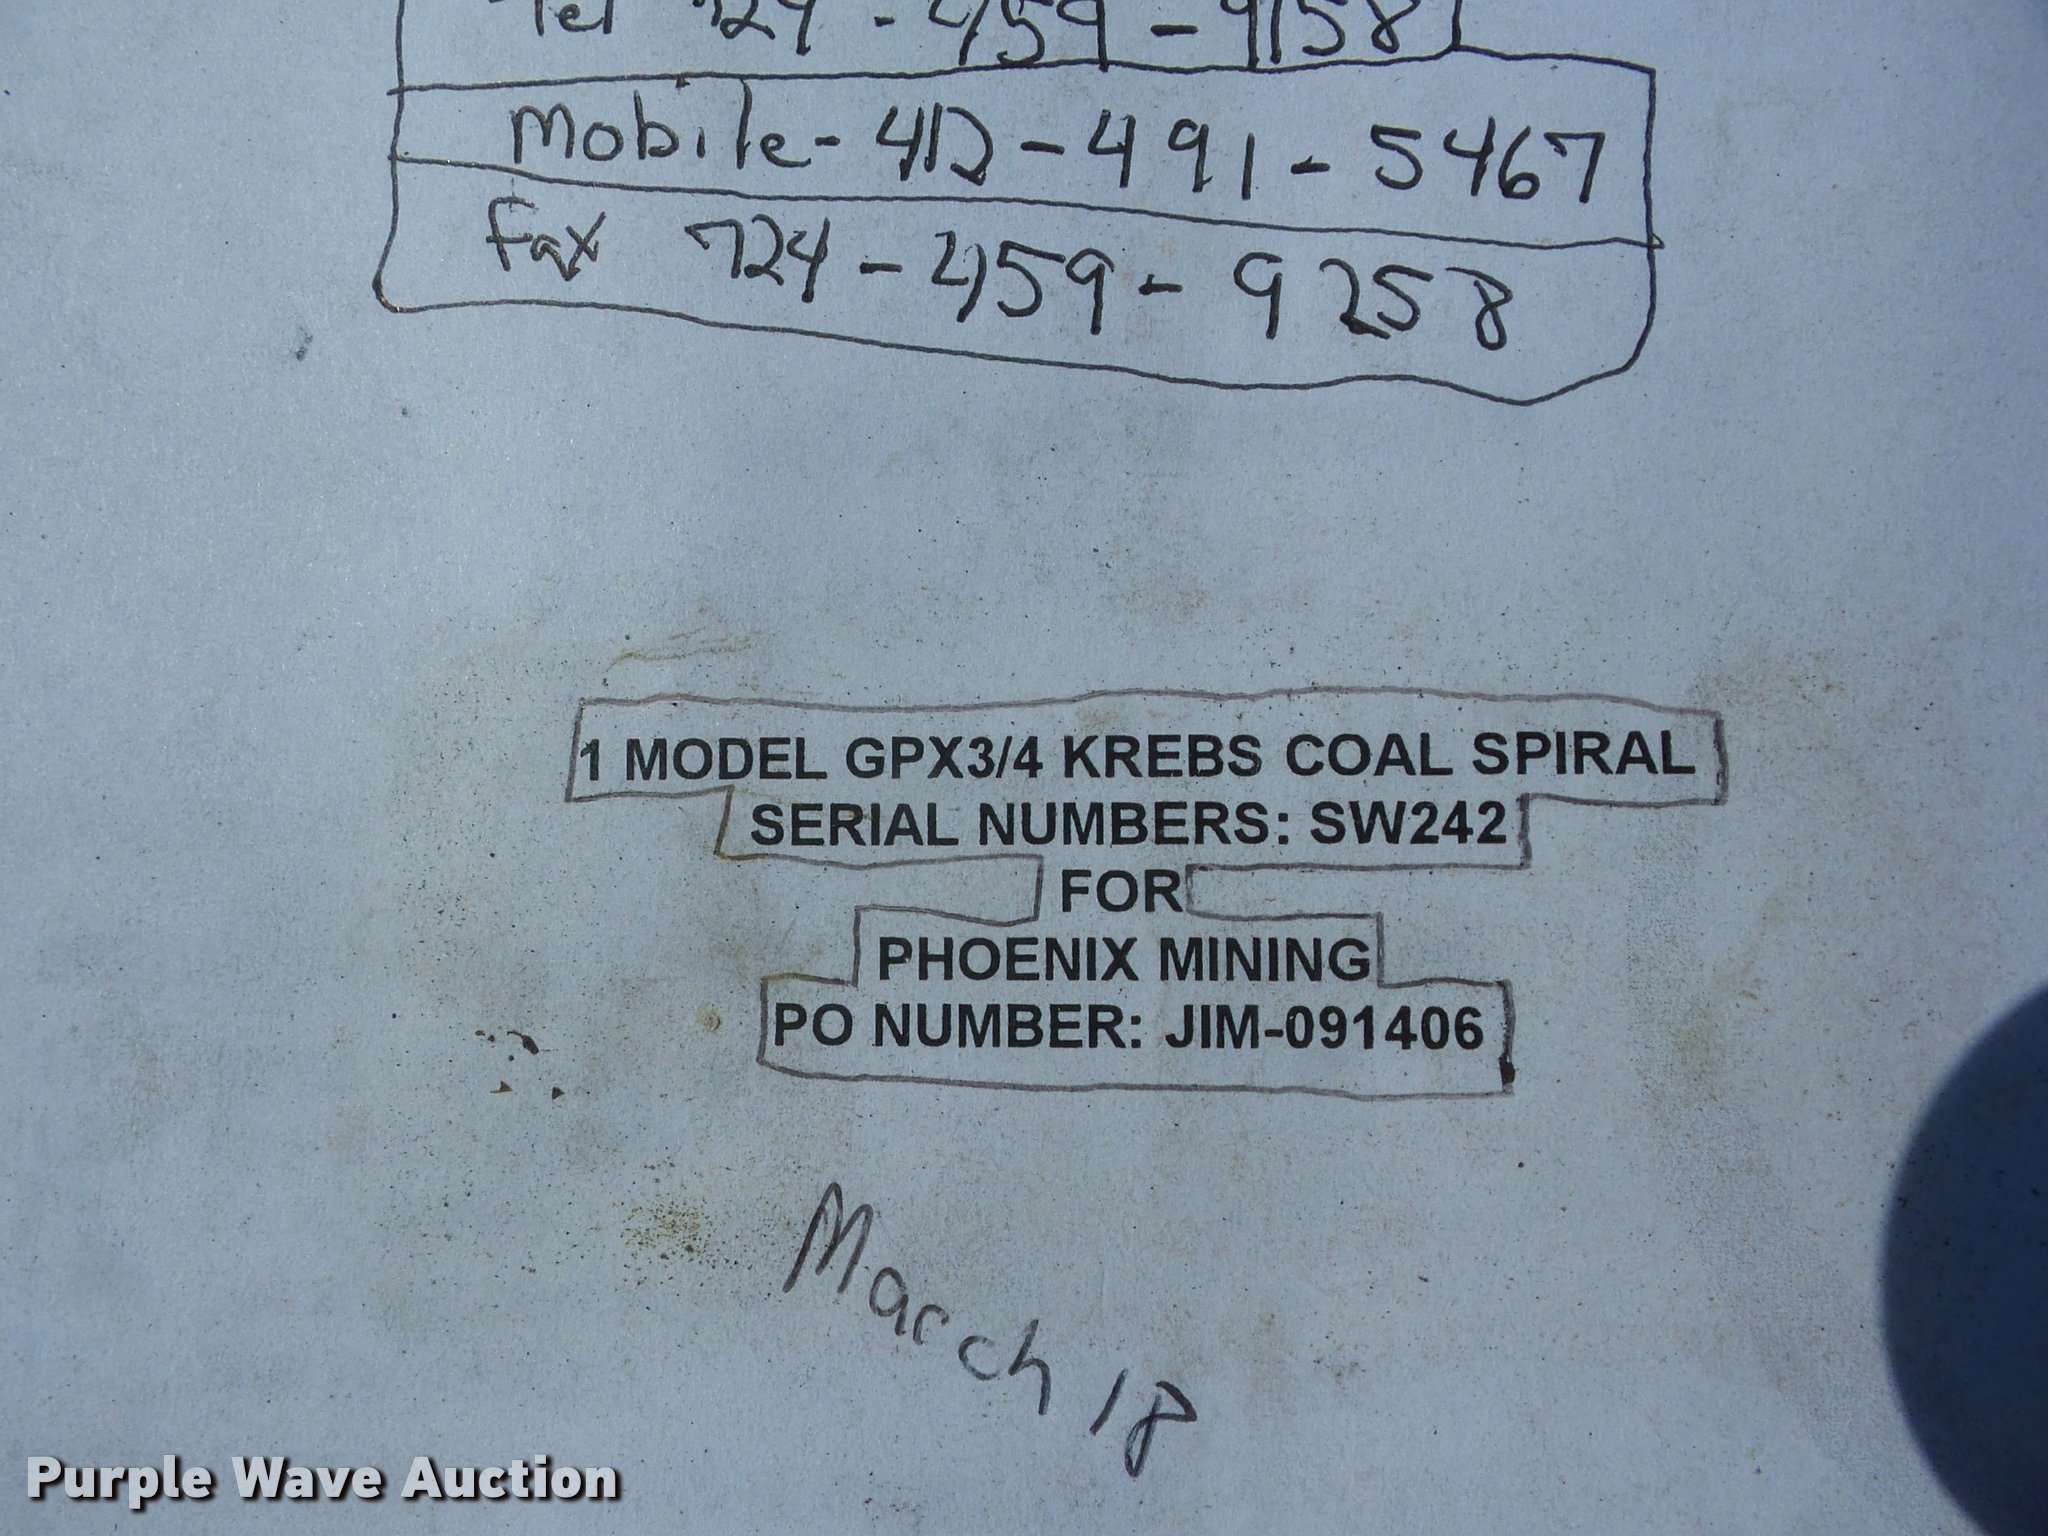 Tel 724 - 459 - 9158
Mobile - 412 - 491 - 5467
Fax 724 - 459 - 9258
1 MODEL GPX3/4 KREBS COAL SPIRAL
SERIAL NUMBERS: SW242
FOR
PHOENIX MINING
PO NUMBER: JIM-091406
March 18
Purple Wave Auction